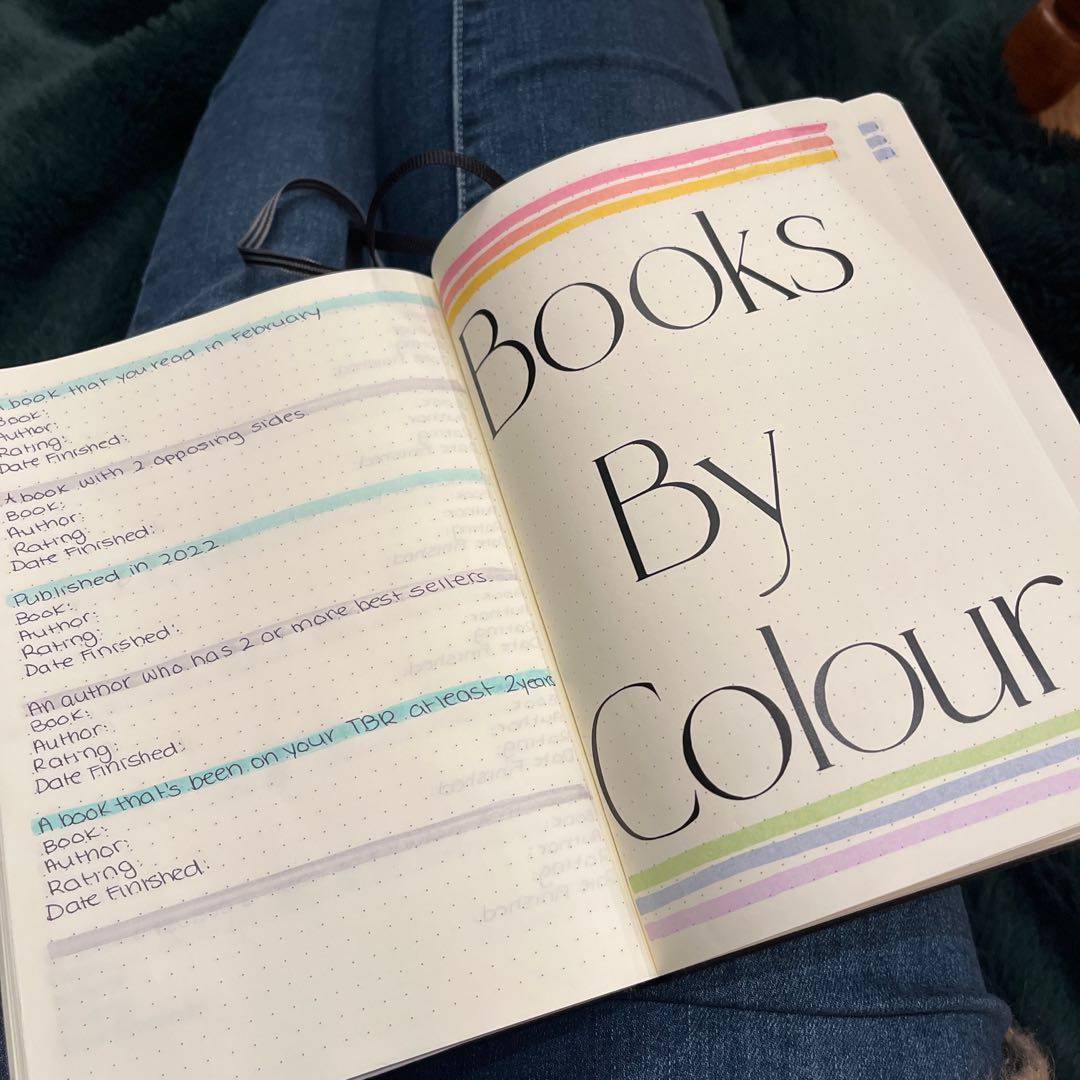 A book that you read in February
Book:
Author:
Rating:
Date Finished:
A book with 2 opposing sides
Book:
Author:
Rating:
Date Finished:
Published in 2022
Book:
Author:
Rating:
Date Finished:
An author who has 2 or more best sellers.
Book:
Author:
Rating:
Date Finished:
A book that's been on your TBR atleast 2years
Book:
Author:
Rating:
Date Finished:
Books
By
Colour